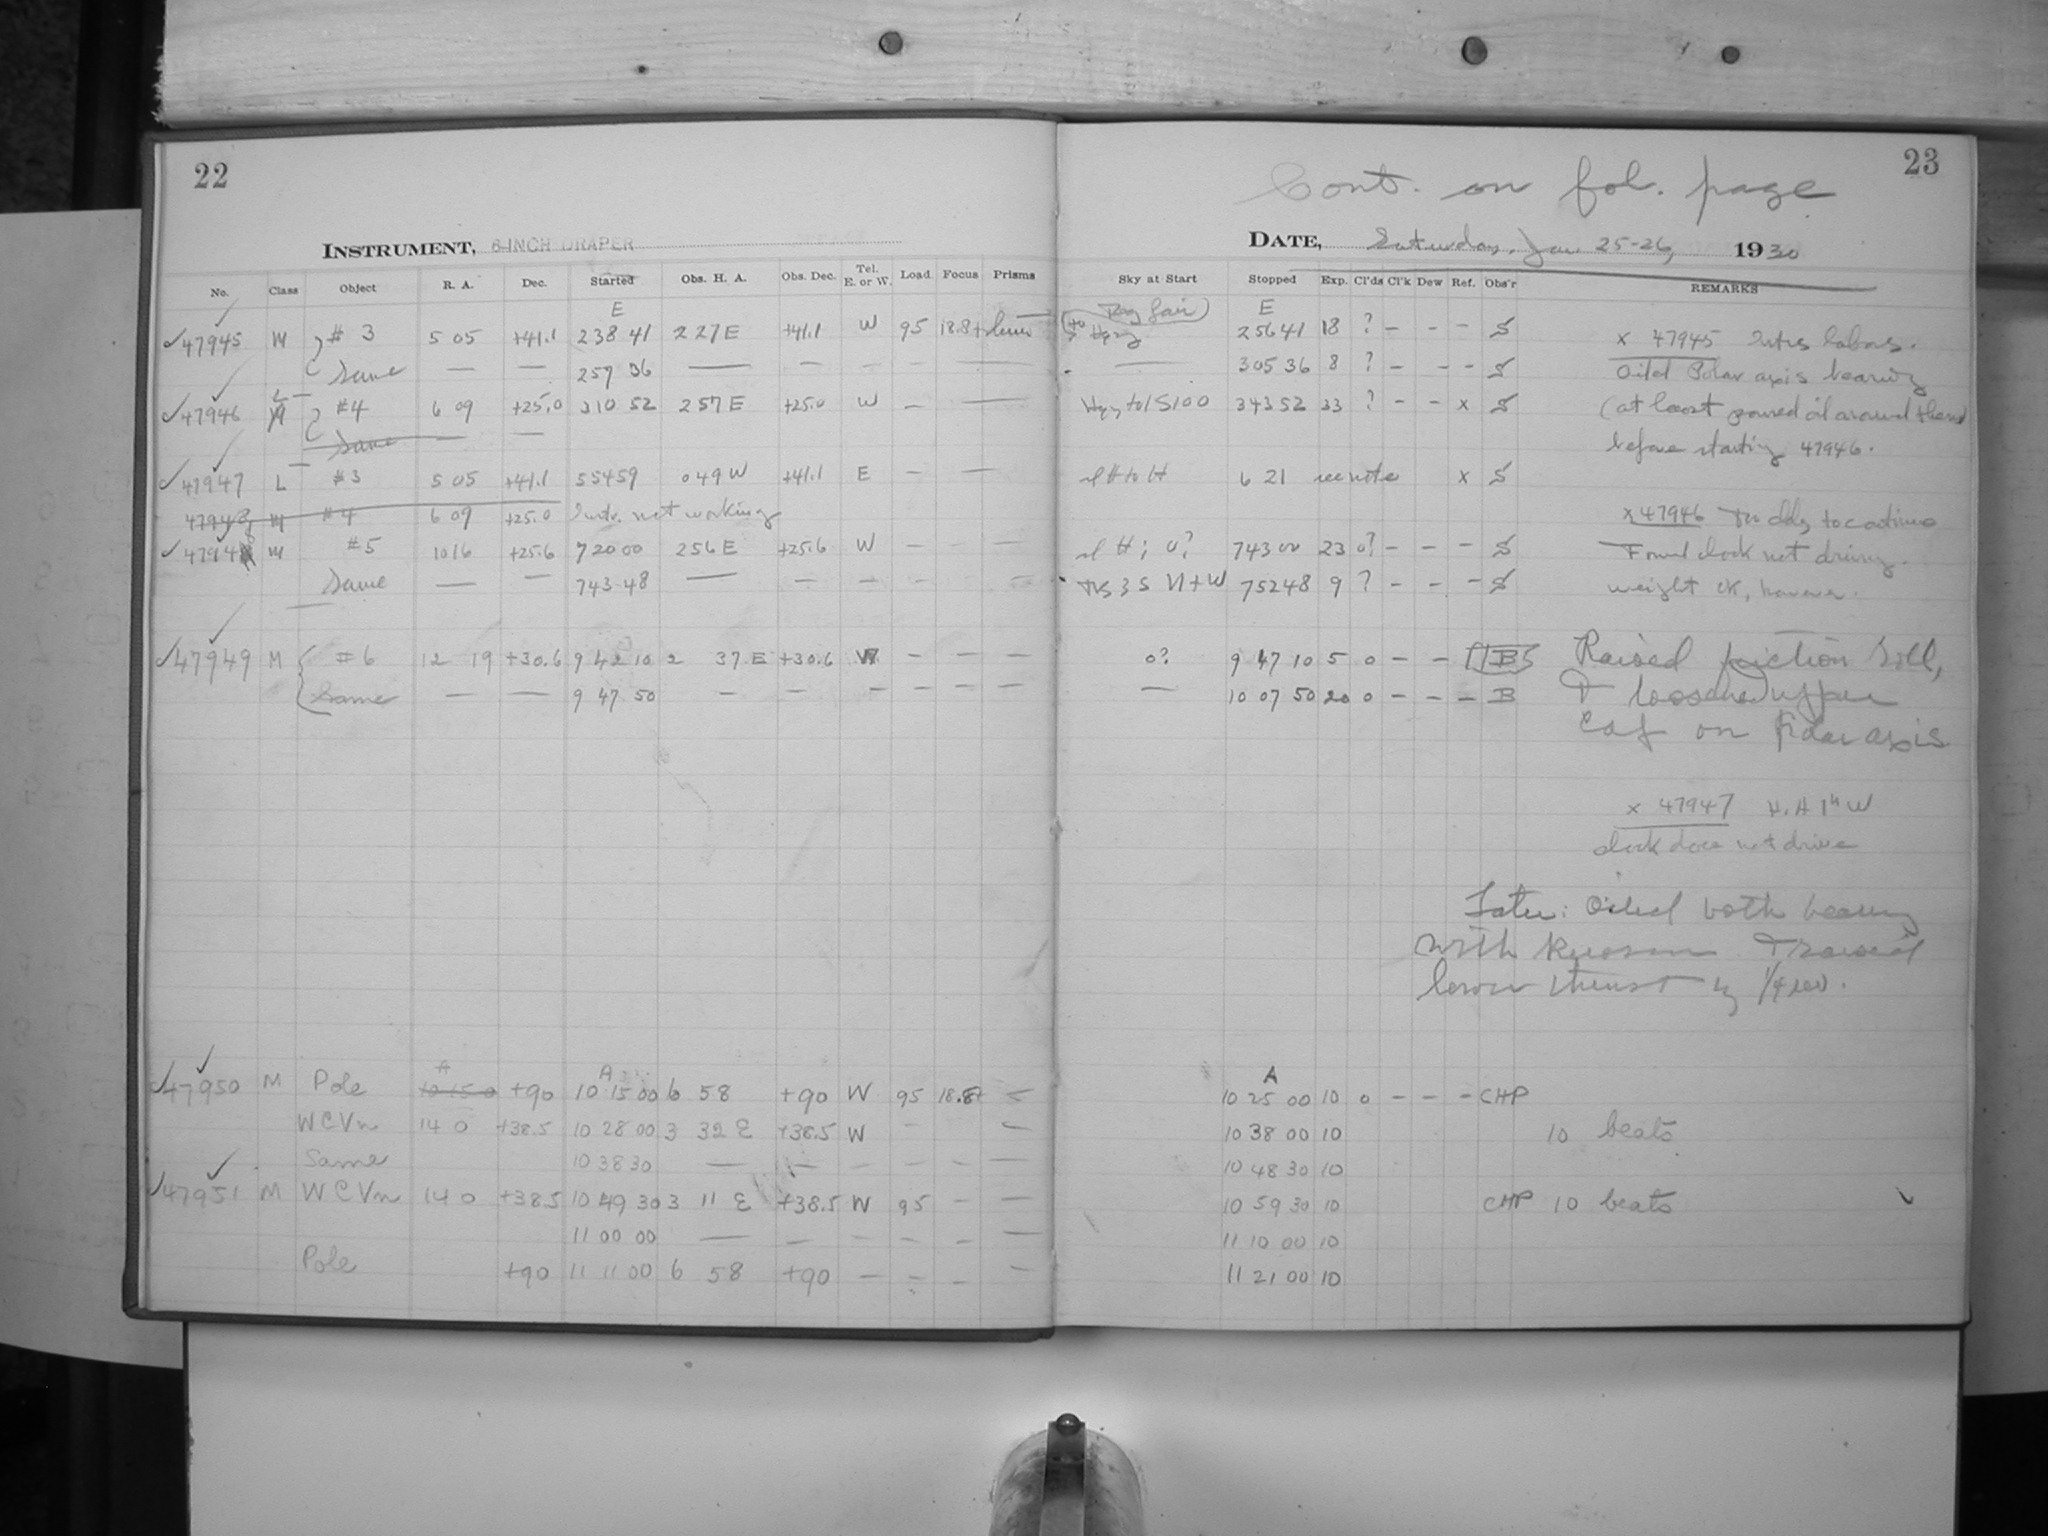 22
INSTRUMENT, 8-INCH DRAPER
No. Class Object R. A. Dec. Started Obs. H. A. Obs. Dec. Tel. E. or W. Load Focus Prisms
E
47945 M # 3 5 05 +41.1 2 38 41 2 27 E +41.1 W 95 18.8+
Same — — 2 57 36 — — — — — —
L
47946 M #4 6 09 +25.0 3 10 52 2 57 E +25.0 W — —
Same — —
47947 L #3 5 05 +41.1 5 54 59 0 49 W +41.1 E — —
47948 M #4 6 09 +25.0 Instr. not working
47948 M #5 10 16 +25.6 7 20 00 2 56 E +25.6 W — — —
Same — — 7 43 48 — — — — — —
47949 M #6 12 19 +30.6 9 42 10 2 37 E +30.6 W — — —
Same — — 9 47 50 — — — — — —
A A
47950 M Pole 10 15 0 +90 10 15 00 6 58 +90 W 95 18.8+ —
WCVn 14 0 +38.5 10 28 00 3 32 E +38.5 W — —
Same 10 38 30 — — — — — —
47951 M WCVn 14 0 +38.5 10 49 30 3 11 E +38.5 W 95 — —
11 00 00 — — — — — —
Pole +90 11 11 00 6 58 +90 — — — —
23
Cont. on fol. page
DATE, Saturday, Jan 25-26, 1930
Sky at Start Stopped Exp. Cl'ds Cl'k Dew Ref. Obs'r REMARKS
fair E
Hazy 2 56 41 18 ? — — — S
x 47945 labors.
— 3 05 36 8 ? — — — S
Oiled Polar axis bearing
Hzy to 1S100 3 43 52 33 ? — — x S
(at least poured oil around them
before starting 47946.
H to H 6 21 see note x S
x 47946 to continue
H; 0? 7 43 00 23 0? — — — S
Found clock not driving.
3 S N+W 7 52 48 9 ? — — — S
weight OK, however.
0? 9 47 10 5 0 — — B
Raised friction
— 10 07 50 20 0 — — — B
& loosened upper
on Polar axis
x 47947 H.A 1h W
clock does not drive
Later: Oiled both bearing
with & raised
lower thrust by 1/4 rev.
A
10 25 00 10 0 — — — CHP
10 38 00 10 10 beats
10 48 30 10
10 59 30 10 CHP 10 beats
11 10 00 10
11 21 00 10